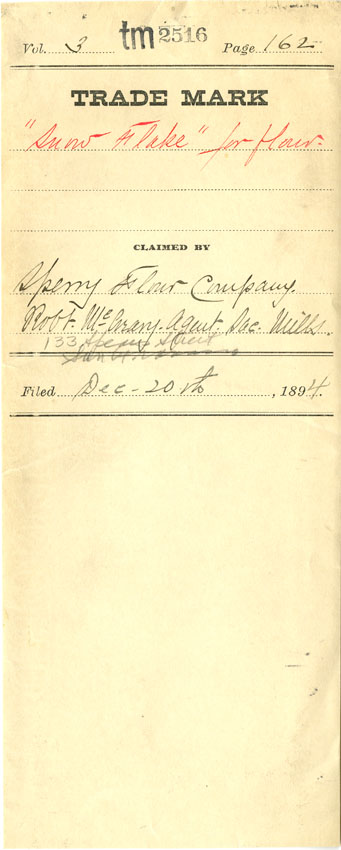 Vol. 3 tm 2516 Page 162
TRADE MARK
"Snow Flake" for flour.
CLAIMED BY
Sperry Flour Company.
Robt. McCrary. Agent. Sac. Mills.
133 Spear Street
San Francisco
Filed Dec - 20th, 1894.